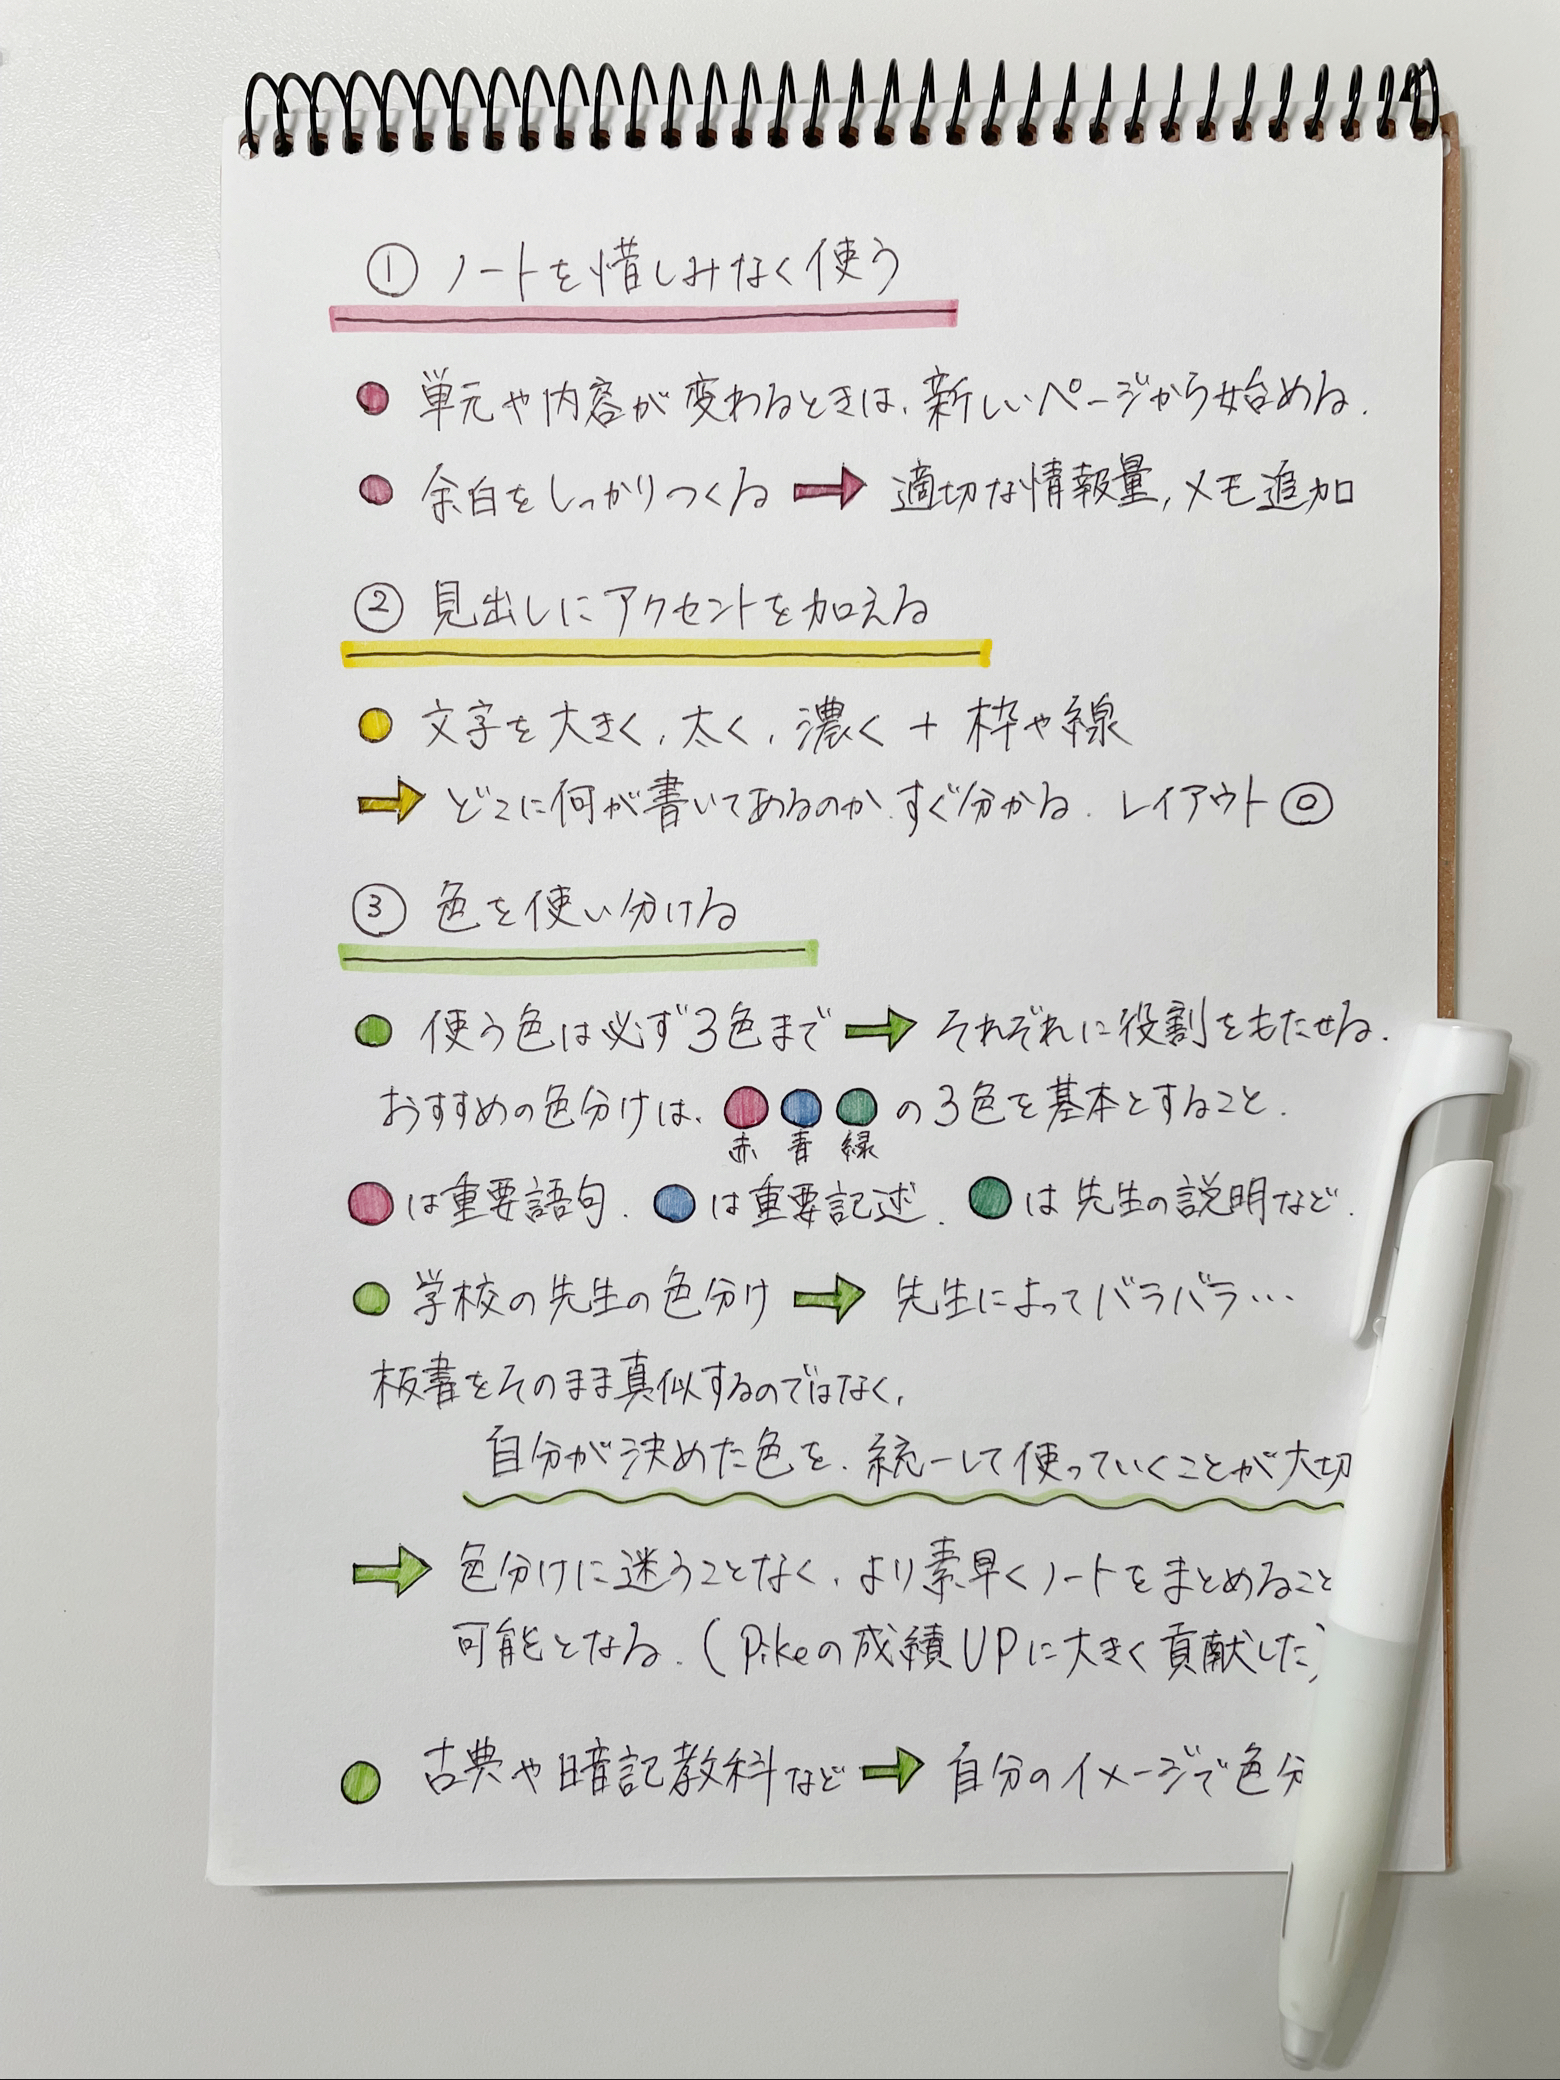 ① ノートを惜しみなく使う
単元や内容が変わるときは、新しいページから始める.
余白をしっかりつくる → 適切な情報量,メモ追加
② 見出しにアクセントを加える
文字を大きく、太く、濃く + 枠や線
→ どこに何が書いてあるのか、すぐ分かる. レイアウト◎
③ 色を使い分ける
使う色は必ず3色まで → それぞれに役割をもたせる.
おすすめの色分けは、の3色を基本とすること.
赤 青 緑
は重要語句. は重要記述. は先生の説明など.
学校の先生の色分け → 先生によってバラバラ…
板書をそのまま真似するのではなく、
自分が決めた色を、統一して使っていくことが大切
→ 色分けに迷うことなく、より素早くノートをまとめること
可能となる.(Pikeの成績UPに大きく貢献した)
古典や暗記教科など → 自分のイメージで色分